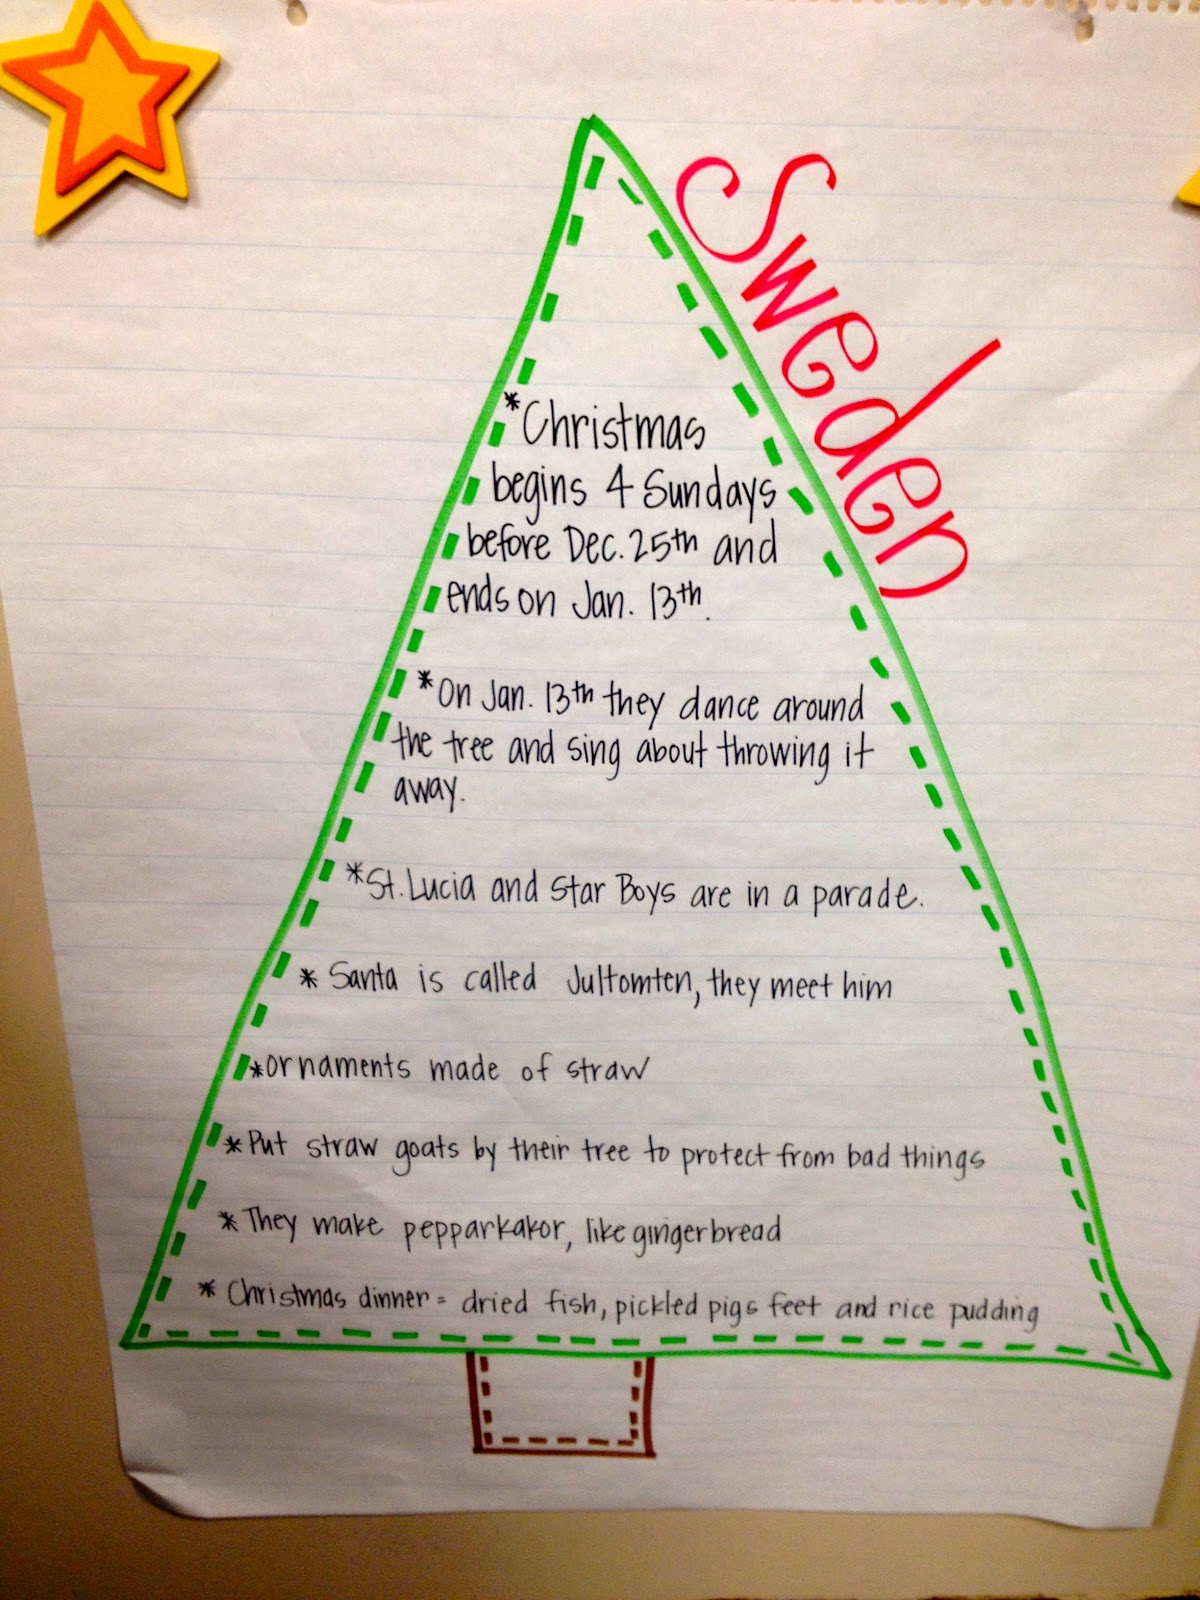 Sweden
*Christmas
begins 4 Sundays
before Dec. 25th and
ends on Jan. 13th.
*On Jan. 13th they dance around
the tree and sing about throwing it
away.
*St. Lucia and Star Boys are in a parade.
* Santa is called Jultomten, they meet him
*ornaments made of straw
*Put straw goats by their tree to protect from bad things
*They make pepparkakor, like gingerbread
* Christmas dinner = dried fish, pickled pigs feet and rice pudding